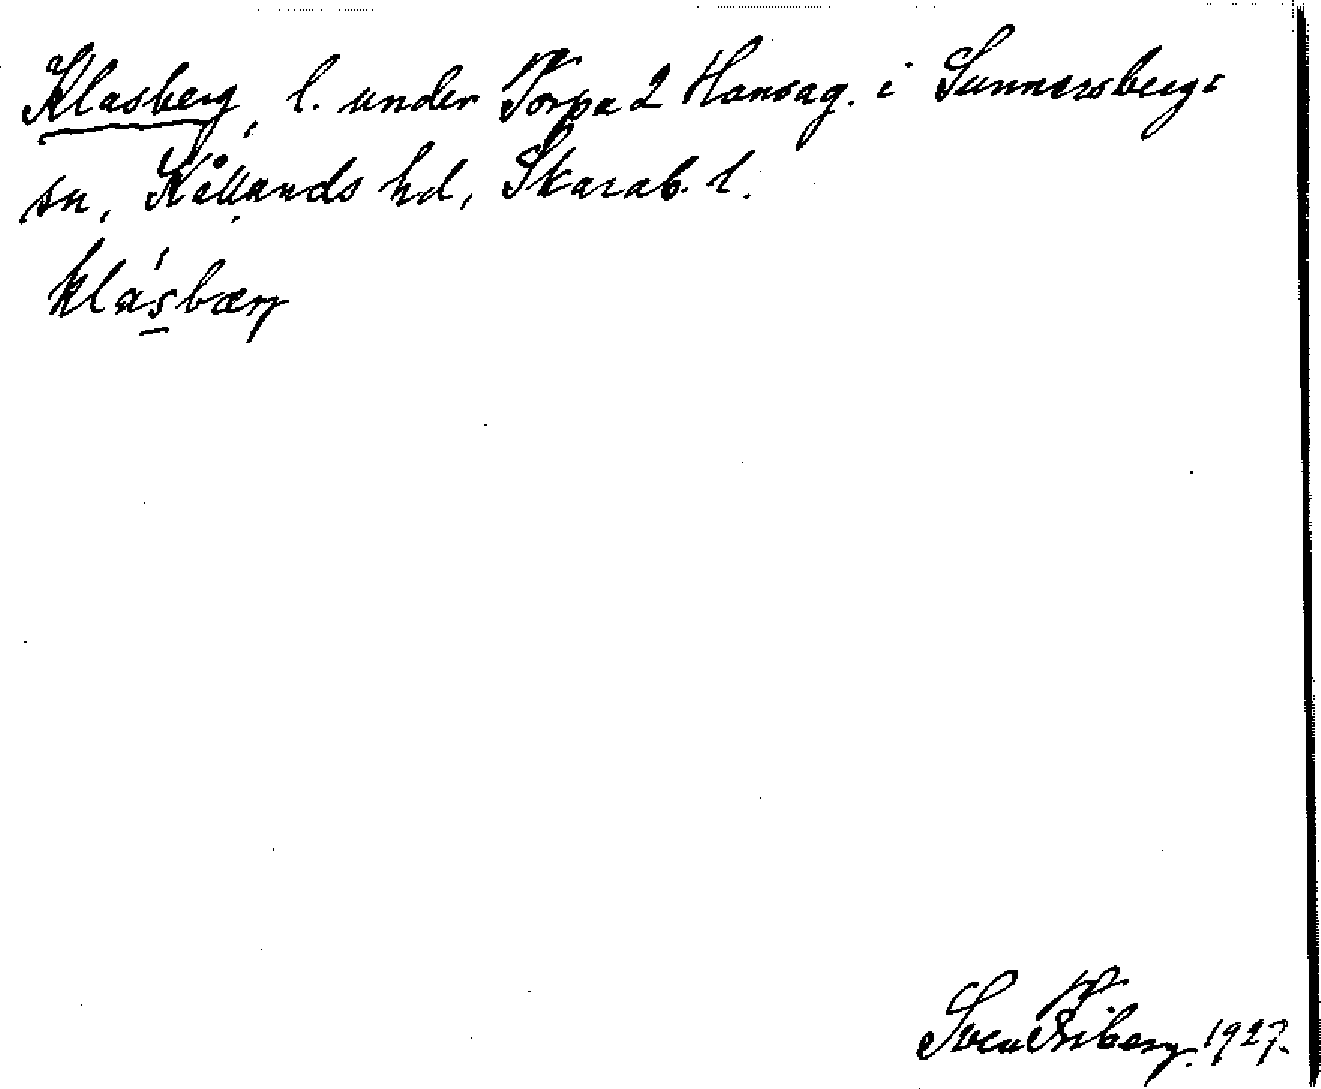 Klasberg, l. under Torpa 2 Hansag. i Sunnersbergs
sn, Kållands hd, Skarab. l.
klásbærg
Sven Friberg. 1927.